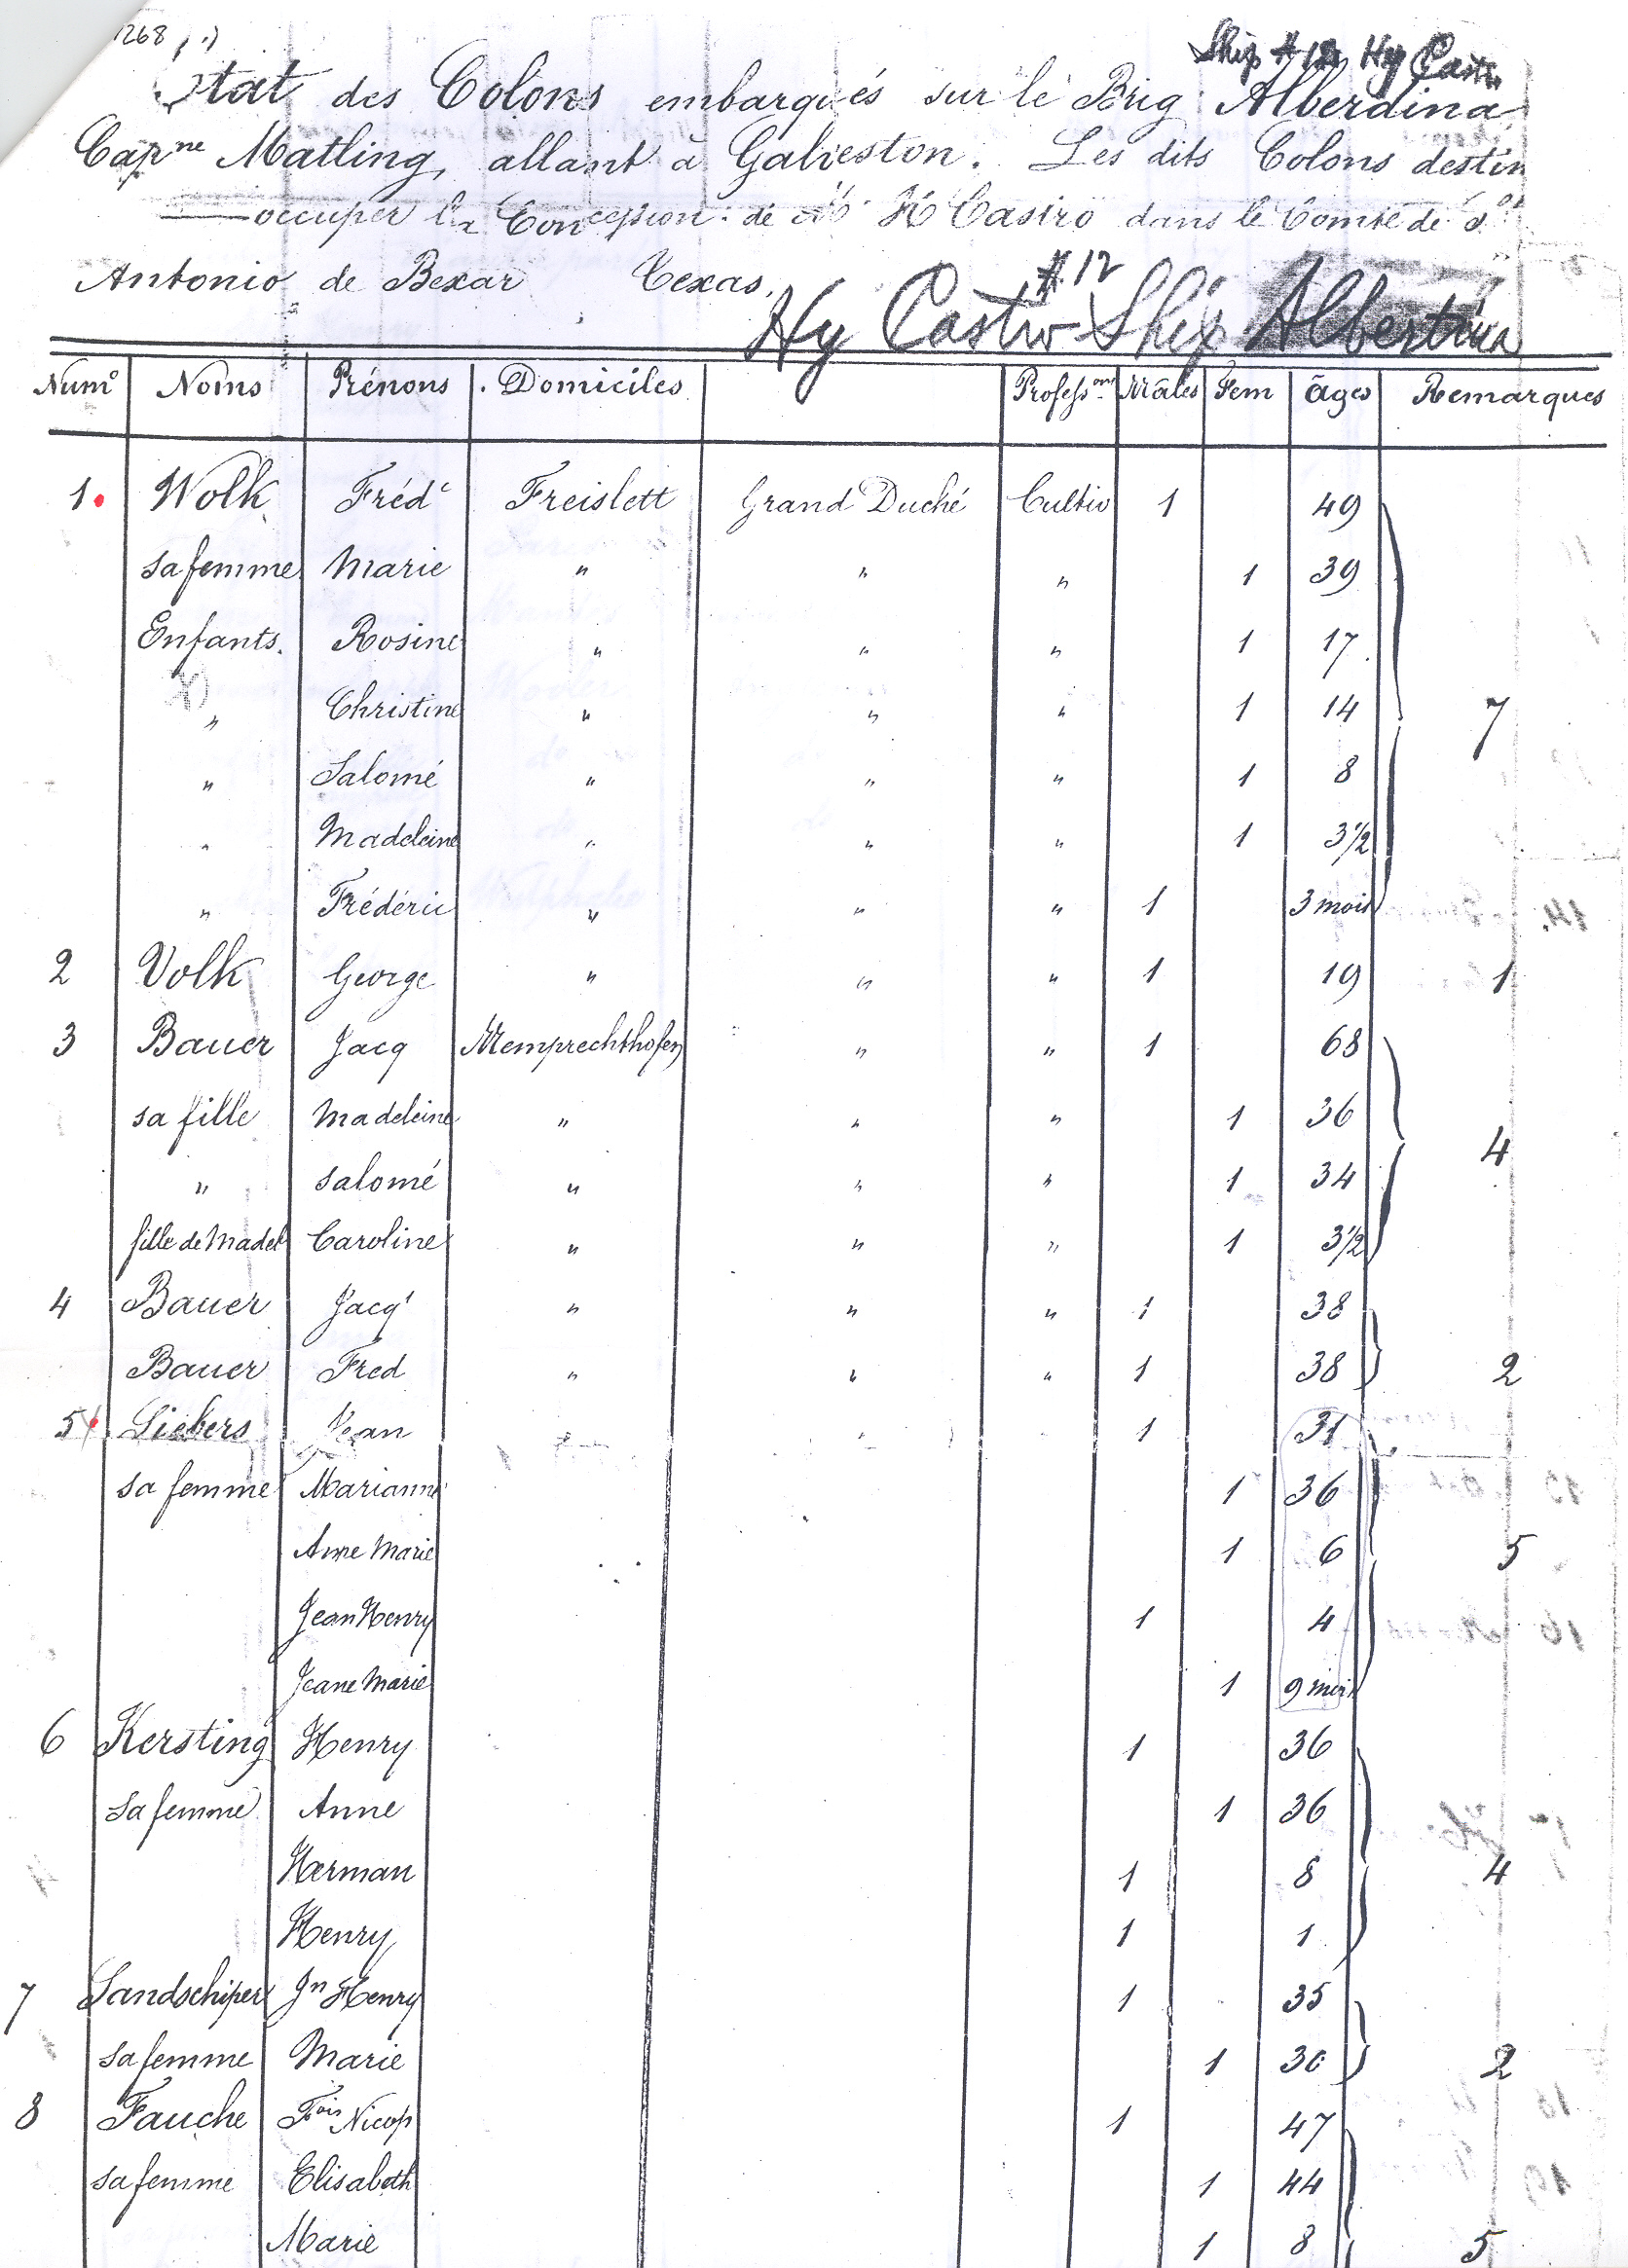 1268
Ship # 12 Hy Castro
Etat des Colons embarqués sur le Brig Alberdina
Capne Matling, allant à Galveston. Les dits Colons destin
occuper la Concession de Mr H Castro dans le Comté de Sn
Antonio de Bexar Texas.
# 12
Hy Castro Ship Albertina
Numo Noms Prénons Domiciles Professons Mâles Fem Âges Remarques
1. Wolk Frédc Freislett Grand Duché Cultiv 1 49
sa femme Marie " " " 1 39
Enfants. Rosine " " " 1 17
" Christine " " " 1 14 7
" Salomé " " " 1 8
" Madeleine " " " 1 3 1/2
" Frédéric " " " 1 3 mois
2 Volk George " " " 1 19 1
3 Bauer Jacq Memprechthofen " " 1 68
sa fille Madeleine " " " 1 36 4
" Salomé " " " 1 34
fille de Madel Caroline " " " 1 3 1/2
4 Bauer Jacqs " " " 1 38
Bauer Fred " " " 1 38 2
5 Siebers Jean 1 31
sa femme Marianne 1 36
Anne Marie 1 6 5
Jean Henry 1 4
Jeane Marie 1 9 mois
6 Kersting Henry 1 36
Sa femme Anne 1 36
Herman 1 8 4
Henry 1 1
7 Sandschiper Jn Henry 1 35
Sa femme Marie 1 30 2
8 Fauche Fois Nicos 1 47
sa femme Elisabeth 1 44
Marie 1 8 5